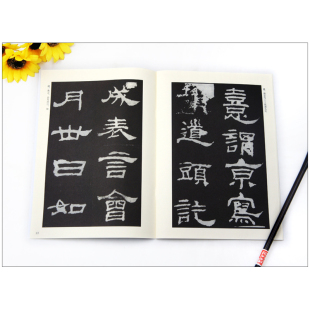 憙謂京寫
遣頭訖
成表言會
月卅日如